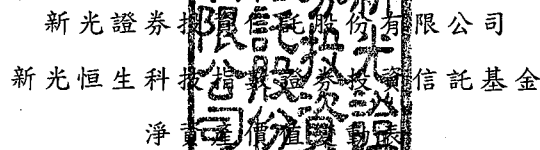 新光證券投資信託股份有限公司
新光恒生科技指數證券投資信託基金
淨資產價值變動表